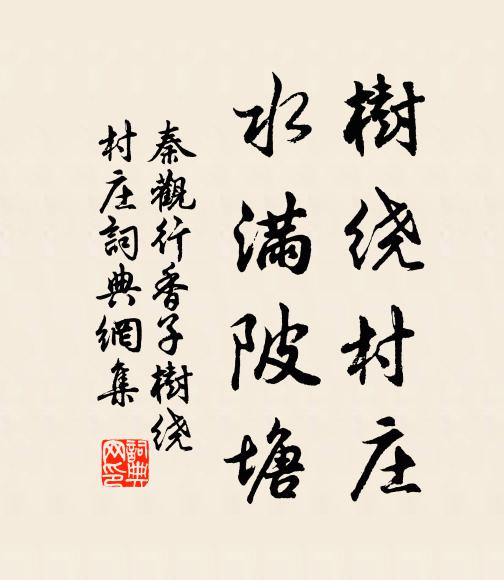 樹绕村庄
水滿陂塘
秦觀行香子樹绕
村庄詞典網集
詞典网印